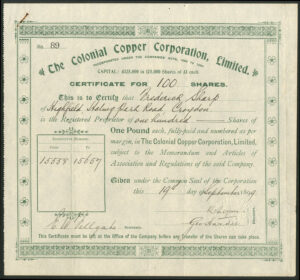 No. 89
The Colonial Copper Corporation, Limited.
INCORPORATED UNDER THE COMPANIES' ACTS, 1862 TO 1898.
CERTIFICATE FOR 100 SHARES.
This is to Certify that Frederick Sharp
of Highfield Selsey Park Road Croydon
is the Registered Proprietor of one hundred Shares of
One Pound each, fully-paid and numbered as per
margin, in The Colonial Copper Corporation, Limited,
subject to the Memorandum and Articles of
Association and Regulations of the said Company.
FROM TO
15558 15657
Given under the Common Seal of the Corporation
this 19th day of September 1899
This Certificate must be left at the Office of the Company before any Transfer of the Shares can take place.